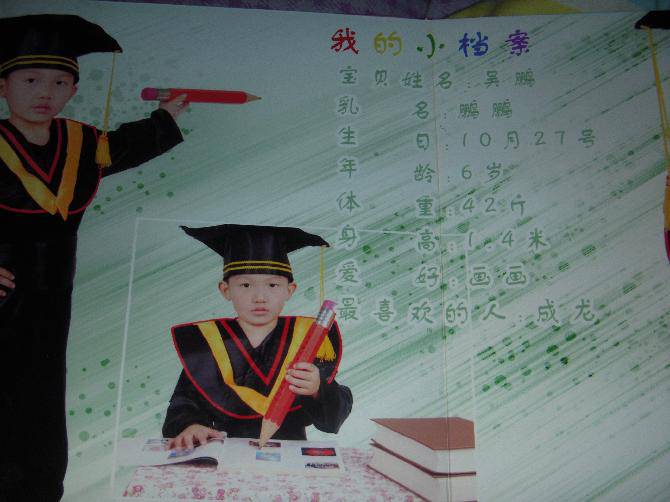 我的小档案
宝贝姓名:吴鹏
乳名:鹏鹏
生日:10月27号
年龄:6岁
体重:42斤
身高:1.4米
爱好:画画
最喜欢的人:成龙